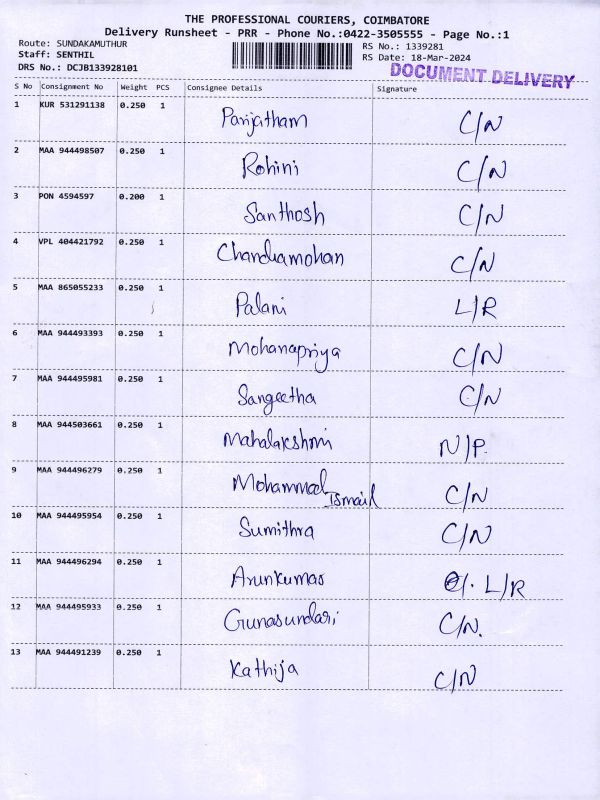 THE PROFESSIONAL COURIERS, COIMBATORE
Delivery Runsheet - PRR - Phone No.:0422-3505555 - Page No.:1
Route: SUNDAKAMUTHUR RS No.: 1339281
Staff: SENTHIL RS Date: 18-Mar-2024
DRS No.: DCJB133928101 DOCUMENT DELIVERY
S No Consignment No Weight PCS Consignee Details Signature
1 KUR 531291138 0.250 1 Parijatham C/N
2 MAA 944498507 0.250 1 Rohini C/N
3 PON 4594597 0.200 1 Santhosh C/N
4 VPL 404421792 0.250 1 Chandramohan C/N
5 MAA 865055233 0.250 1 Palani L/R
6 MAA 944493393 0.250 1 Mohanapriya C/N
7 MAA 944495981 0.250 1 Sangeetha C/N
8 MAA 944503661 0.250 1 Mahalakshmi N/P.
9 MAA 944496279 0.250 1 Mohammad Ismail C/N
10 MAA 944495954 0.250 1 Sumithra C/N
11 MAA 944496294 0.250 1 Arunkumar L/R
12 MAA 944495933 0.250 1 Gunasundari C/N.
13 MAA 944491239 0.250 1 Kathija C/N